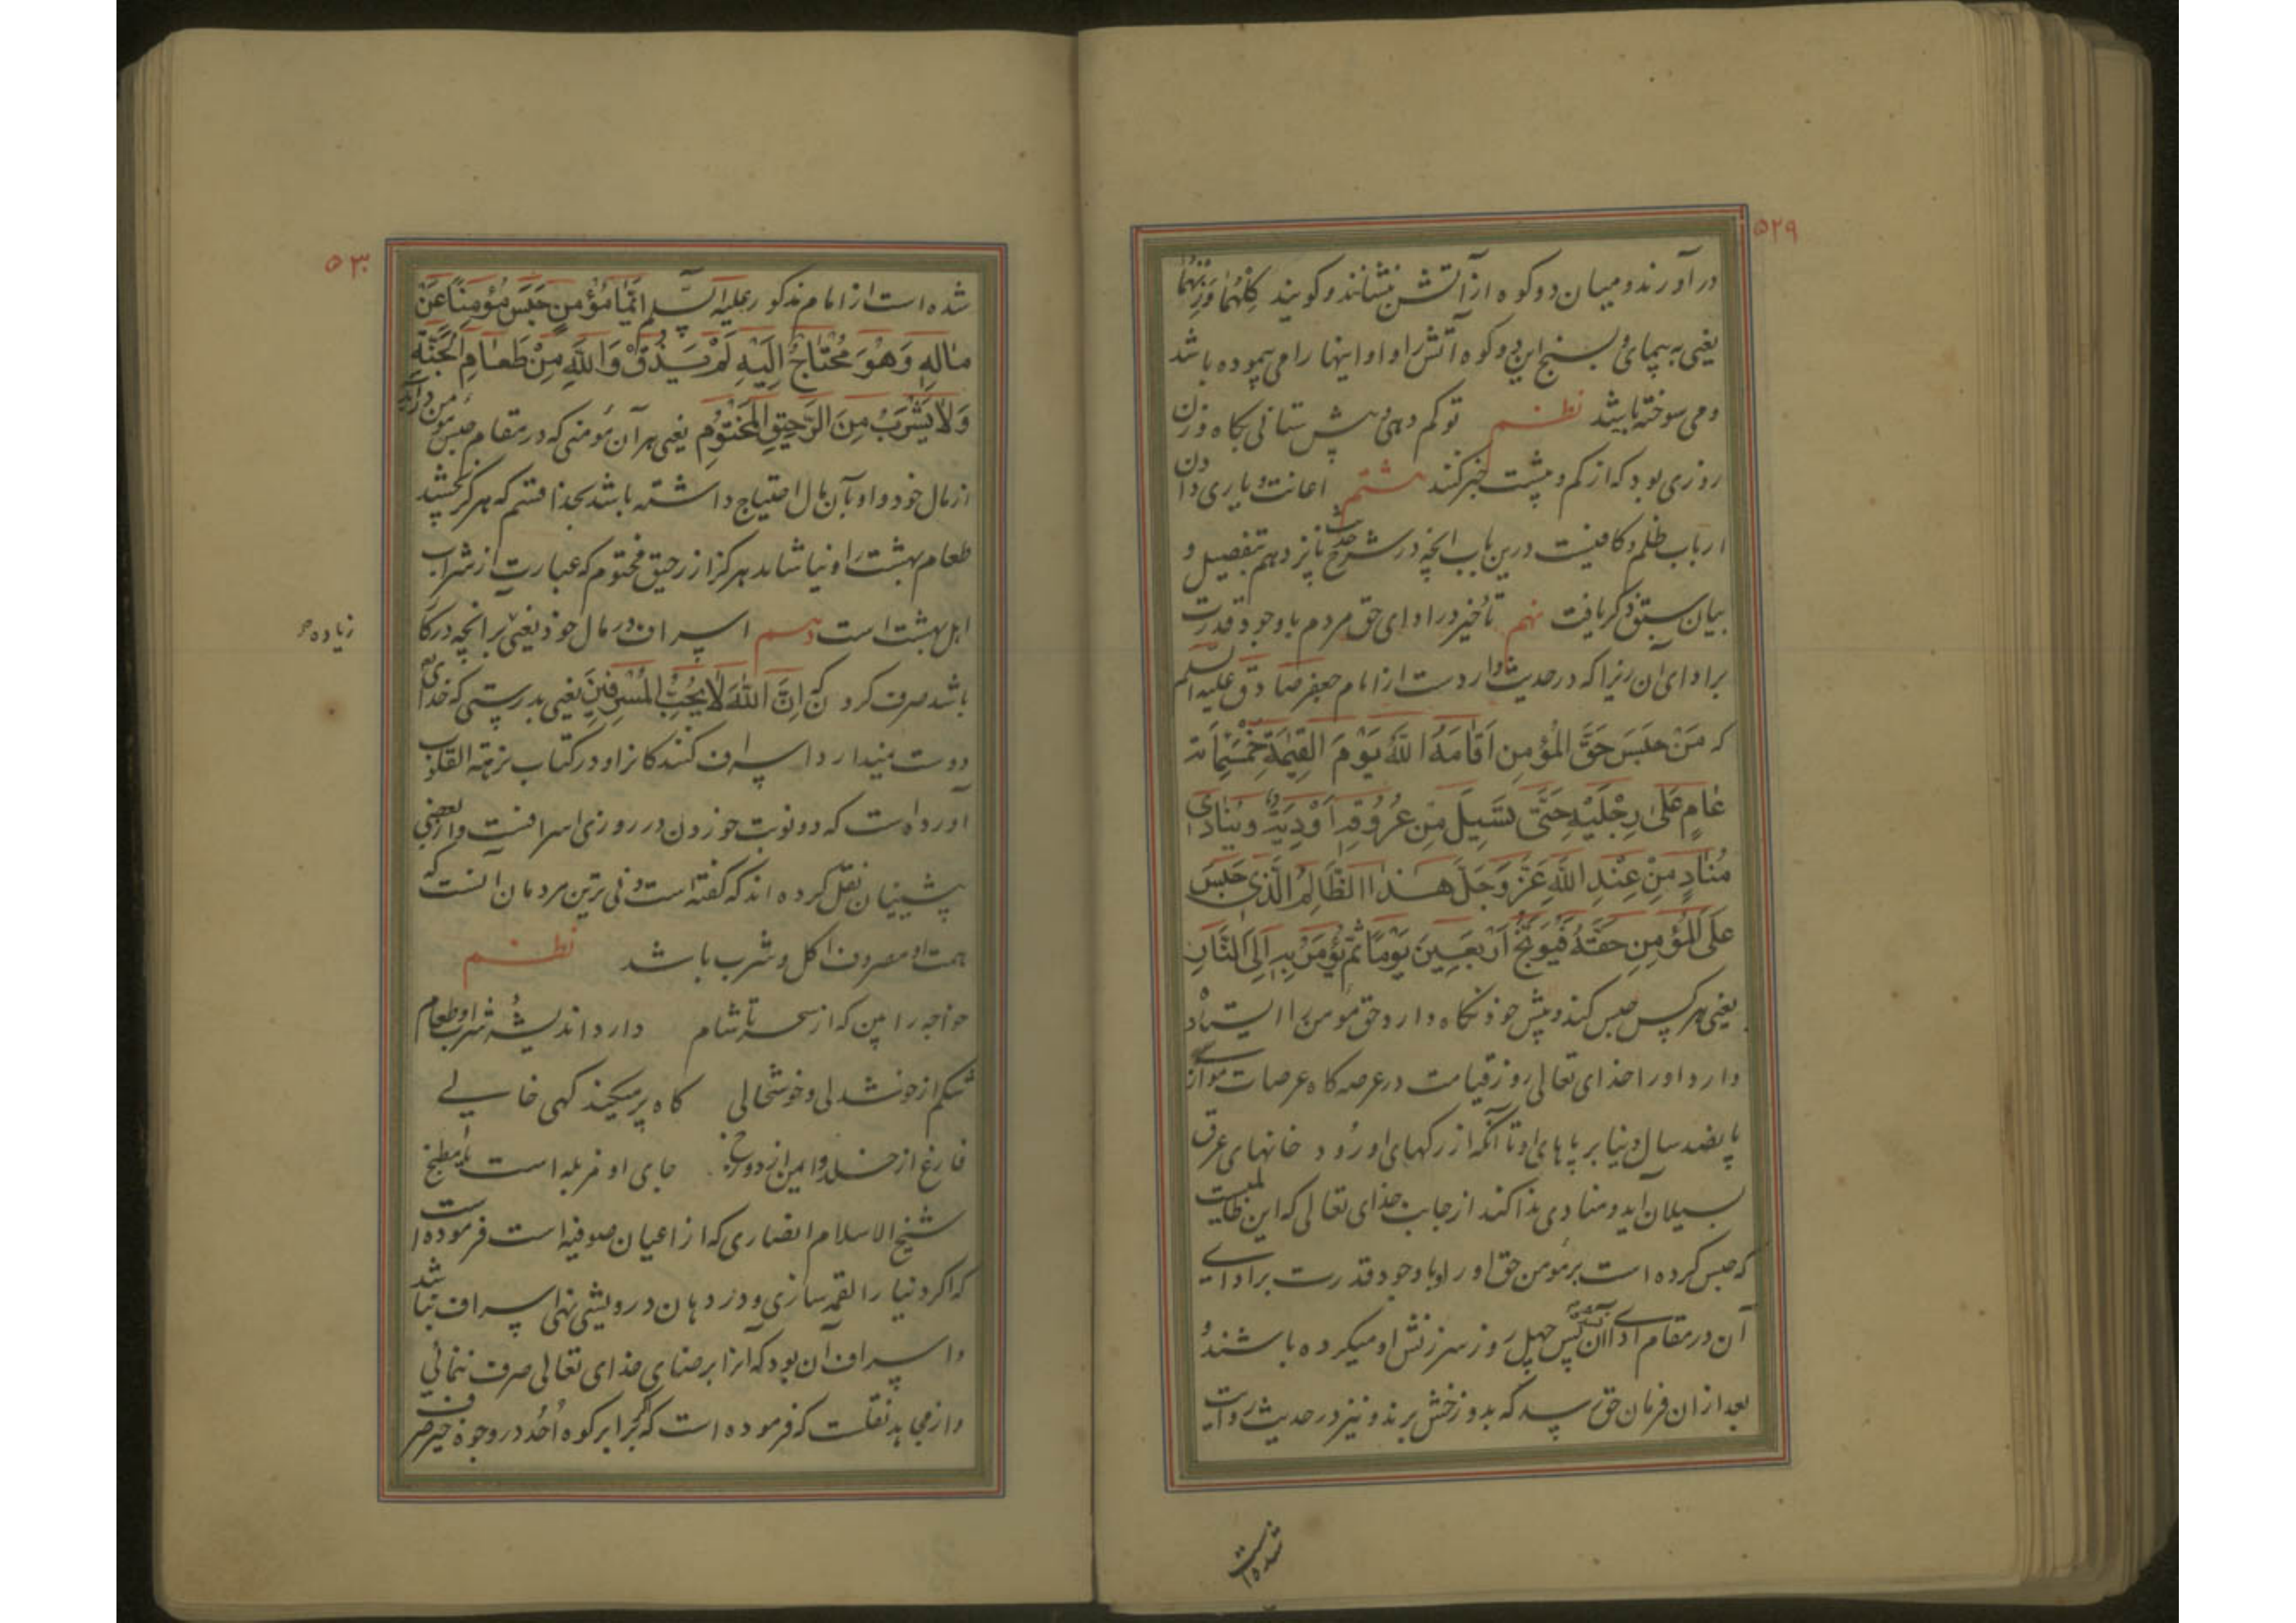 ۵۲۹
درآورند و میان دو کوه از آتش بنشانند و کویند کِلْهُمٰا وَزِنْهُمٰا
یعنی به پیمای و بسنج این دو کوه آتش را و او اینها را می پیموده باشد
و می سوخته باشد نظم تو کم دهی و بیش ستانی بکاه وزن
روزی بود که از کم و بیشت خبر کنند هشتم اعانت و یاری دادن
ارباب ظلم و کافیست درین باب انچه در شرح حدیث پانزدهم تفصیل و
بیان سبق ذکر یافت نهم تأخیر در ادای حق مردم با وجود قدرت
بر ادای آن زیرا که در حدیث وارد است از امام جعفر صادق علیه السلم
که مَنْ حَبَسَ حَقَّ المُؤمِنِ اَقٰامَهُ اللّٰهُ یَوْمَ القِیٰمَةِ خَمْسَمِائَة
عٰامٍ عَلیٰ رِجْلَیْهِ حَتّیٰ تَسیلَ مِن عُرُوقِهِ اَوْدِیَةٌ وَیُنٰادی
مُنٰادٍ مِنْ عِنْدِ اللّٰهِ عَزَّ وَجَلَّ هٰذَا الظّٰالِمُ الَّذی حَبَسَ
عَلَی المُؤمِنِ حَقَّهُ فَیُوَبَّخُ اَرْبَعینَ یَوْمًا ثُمَّ یُؤمَرُ بِهِ اِلَی النّٰارِ
یعنی هر کس حبس کند و پیش خود نکاه دارد حق مومن را ایستاده
دارد او را خدای تعالی روز قیامت در عرصه کاه عرصات موازی
پانصد سال دنیا بر پاهای او تا آنکه از رکهای او رود خانهای عرق
بسیلان آید و منادی ندا کند از جانب خدای تعالی که این ظالمیست
که حبس کرده است بر مومن حق او را و با وجود قدرت بر ادای
آن در مقام ادای آن پس چهل روز سرزنش او میکرده باشند و
بعد از ان فرمان حق رسد که بدوزخش برند و نیز در حدیث روایت
شده است
۵۳۰
شده است از امام مذکور علیه السلم اَیُّمٰا مُؤمِنٍ حَبَسَ مُؤمِنًا عَنْ
مٰالِهِ وَهُوَ مُحْتٰاجٌ اِلَیْهِ لَمْ یَذُقْ وَاللّٰهِ مِنْ طَعٰامِ الجَنَّةِ
وَلاٰ یَشْرَبُ مِنَ الرَّحیقِ المَخْتُومِ یعنی هر آن مؤمنی که در مقام حبس مؤمن درآید
از مال خود و او بآن مال احتیاج داشته باشد بخدا قسم که هرکز نچشد
طعام بهشت را و نیاشامد هرکز از رحیق مختوم که عبارت از شراب
اهل بهشت است دهم اسراف در مال خود یعنی بر انچه درکار
زیاده
باشد صرف کردن که اِنَّ اللّٰهَ لاٰ یُحِبُّ المُسْرِفینَ یعنی بدرستی که خدای
دوست نمیدارد اسراف کنندکانرا و در کتاب نزهة القلوب
آورده است که دو نوبت خوردن در روزی اسرافست و از بعضی
پیشینیان نقل کرده اند که کفته است دنی ترین مردمان آنست که
همت او مصروف اکل و شرب باشد نظم
خواجه را بین که از سحر تا شام دارد اندیشه شراب و طعام
شکم از خوشدلی و خوشحالی کاه پر میکند کهی خالی
فارغ از خلد و ایمن از دوزخ جای او مزبله است یا مطبخ
شیخ الاسلام انصاری که از اعیان صوفیه است فرموده است
که اکر دنیا را لقمه سازی و در دهان درویشی نهی اسراف نباشد
و اسراف آن بود که آنرا برضای خدای تعالی صرف ننمائی
و از مجاهد نقلست که فرموده است که اکر برابر کوه اُحُد در وجوه خیر صرف